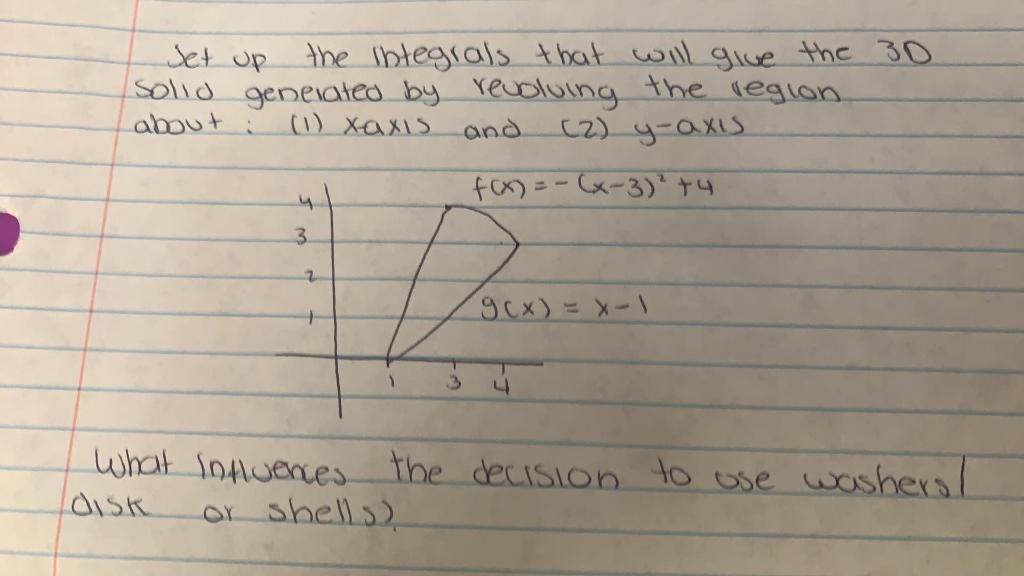 Set up the integrals that will give the 3D
solid generated by revolving the region
about : (1) x-axis and (2) y-axis
f(x) = -(x-3)² + 4
4
3
2
1
g(x) = x-1
1 3 4
What influences the decision to use washers/
disk or shells?